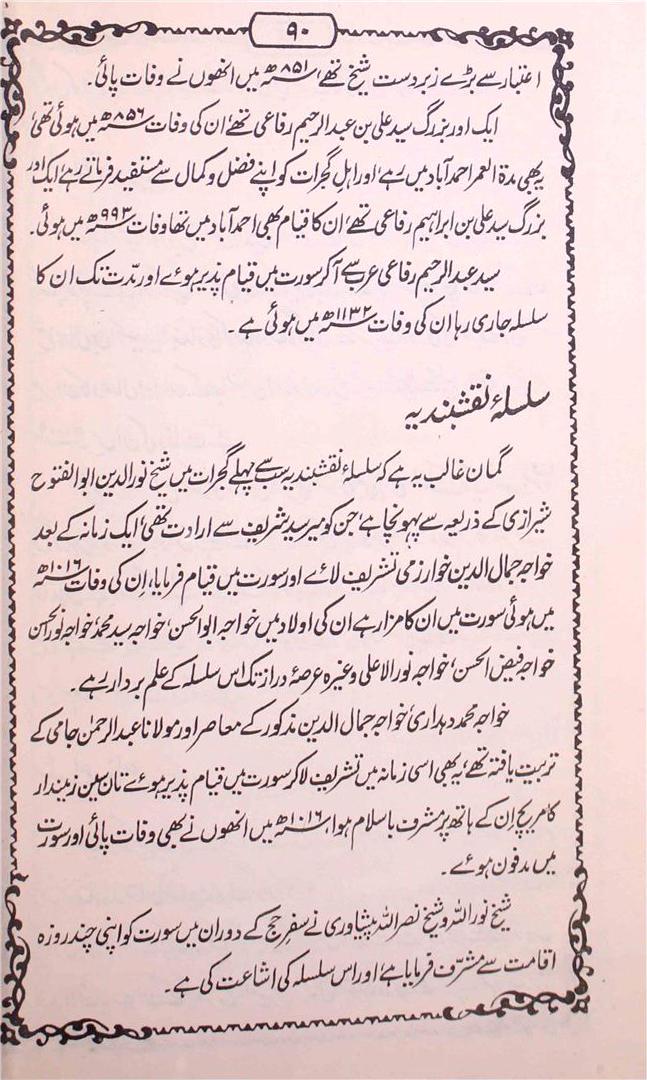 ۹۰
اعتبار سے بڑے زبردست شیخ تھے، ۸۵۱ھ میں انھوں نے وفات پائی۔
ایک اور بزرگ سید علی بن عبدالرحیم رفاعی تھے، ان کی وفات ۸۵۶ھ میں ہوئی تھی،
یہ بھی مدة العمر احمدآباد میں رہے، اور اہل گجرات کو اپنے فضل و کمال سے مستفید فرماتے رہے، ایک اور
بزرگ سید علی بن ابراہیم رفاعی تھے، ان کا قیام بھی احمدآباد میں تھا وفات ۹۹۳ھ میں ہوئی۔
سید عبدالرحیم رفاعی عرب سے آکر سورت میں قیام پذیر ہوئے اور مدّت تک ان کا
سلسلہ جاری رہا ان کی وفات ۱۱۳۲ھ میں ہوئی ہے۔
سلسلۂ نقشبندیہ
گمان غالب یہ ہے کہ سلسلۂ نقشبندیہ سب سے پہلے گجرات میں شیخ نورالدین ابوالفتوح
شیرازی کے ذریعہ سے پہونچا ہے، جن کو میر سید شریف سے ارادت تھی، ایک زمانہ کے بعد
خواجہ جمال الدین خوارزمی تشریف لائے اور سورت میں قیام فرمایا، اِن کی وفات ۱۰۱۶ھ
میں ہوئی سورت میں ان کا مزار ہے ان کی اولاد میں خواجہ ابوالحسن، خواجہ سید محمد، خواجہ نورالحسن
خواجہ فیض الحسن، خواجہ نور الاعلی وغیرہ عرصۂ دراز تک اس سلسلہ کے علم بردار رہے۔
خواجہ محمد دہداری، خواجہ جمال الدین مذکور کے معاصر اور مولانا عبدالرحمٰن جامی کے
تربیت یافتہ تھے، یہ بھی اسی زمانہ میں تشریف لاکر سورت میں قیام پذیر ہوئے تان سین زمیندار
کامریج اِن کے ہاتھ پر مشرف باسلام ہوا، ۱۰۱۶ھ میں انھوں نے بھی وفات پائی اور سورت
میں مدفون ہوئے۔
شیخ نور اللہ و شیخ نصر اللہ پیشاوری نے سفر حج کے دوران میں سورت کو اپنی چند روزہ
اقامت سے مشرّف فرمایا ہے، اور اس سلسلہ کی اشاعت کی ہے۔